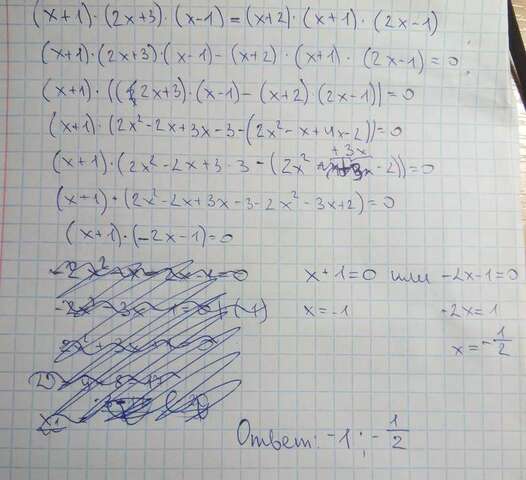 (x+1)·(2x+3)·(x-1)=(x+2)·(x+1)·(2x-1)
(x+1)·(2x+3)·(x-1)-(x+2)·(x+1)·(2x-1)=0
(x+1)·((2x+3)·(x-1)-(x+2)·(2x-1))=0
(x+1)·(2x²-2x+3x-3-(2x²-x+4x-2))=0
(x+1)·(2x²-2x+3-3-(2x²+3x-2))=0
(x+1)·(2x²-2x+3x-3-2x²-3x+2)=0
(x+1)·(-2x-1)=0
x+1=0 или -2x-1=0
x=-1 -2x=1
x=-1/2
Ответ: -1; -1/2